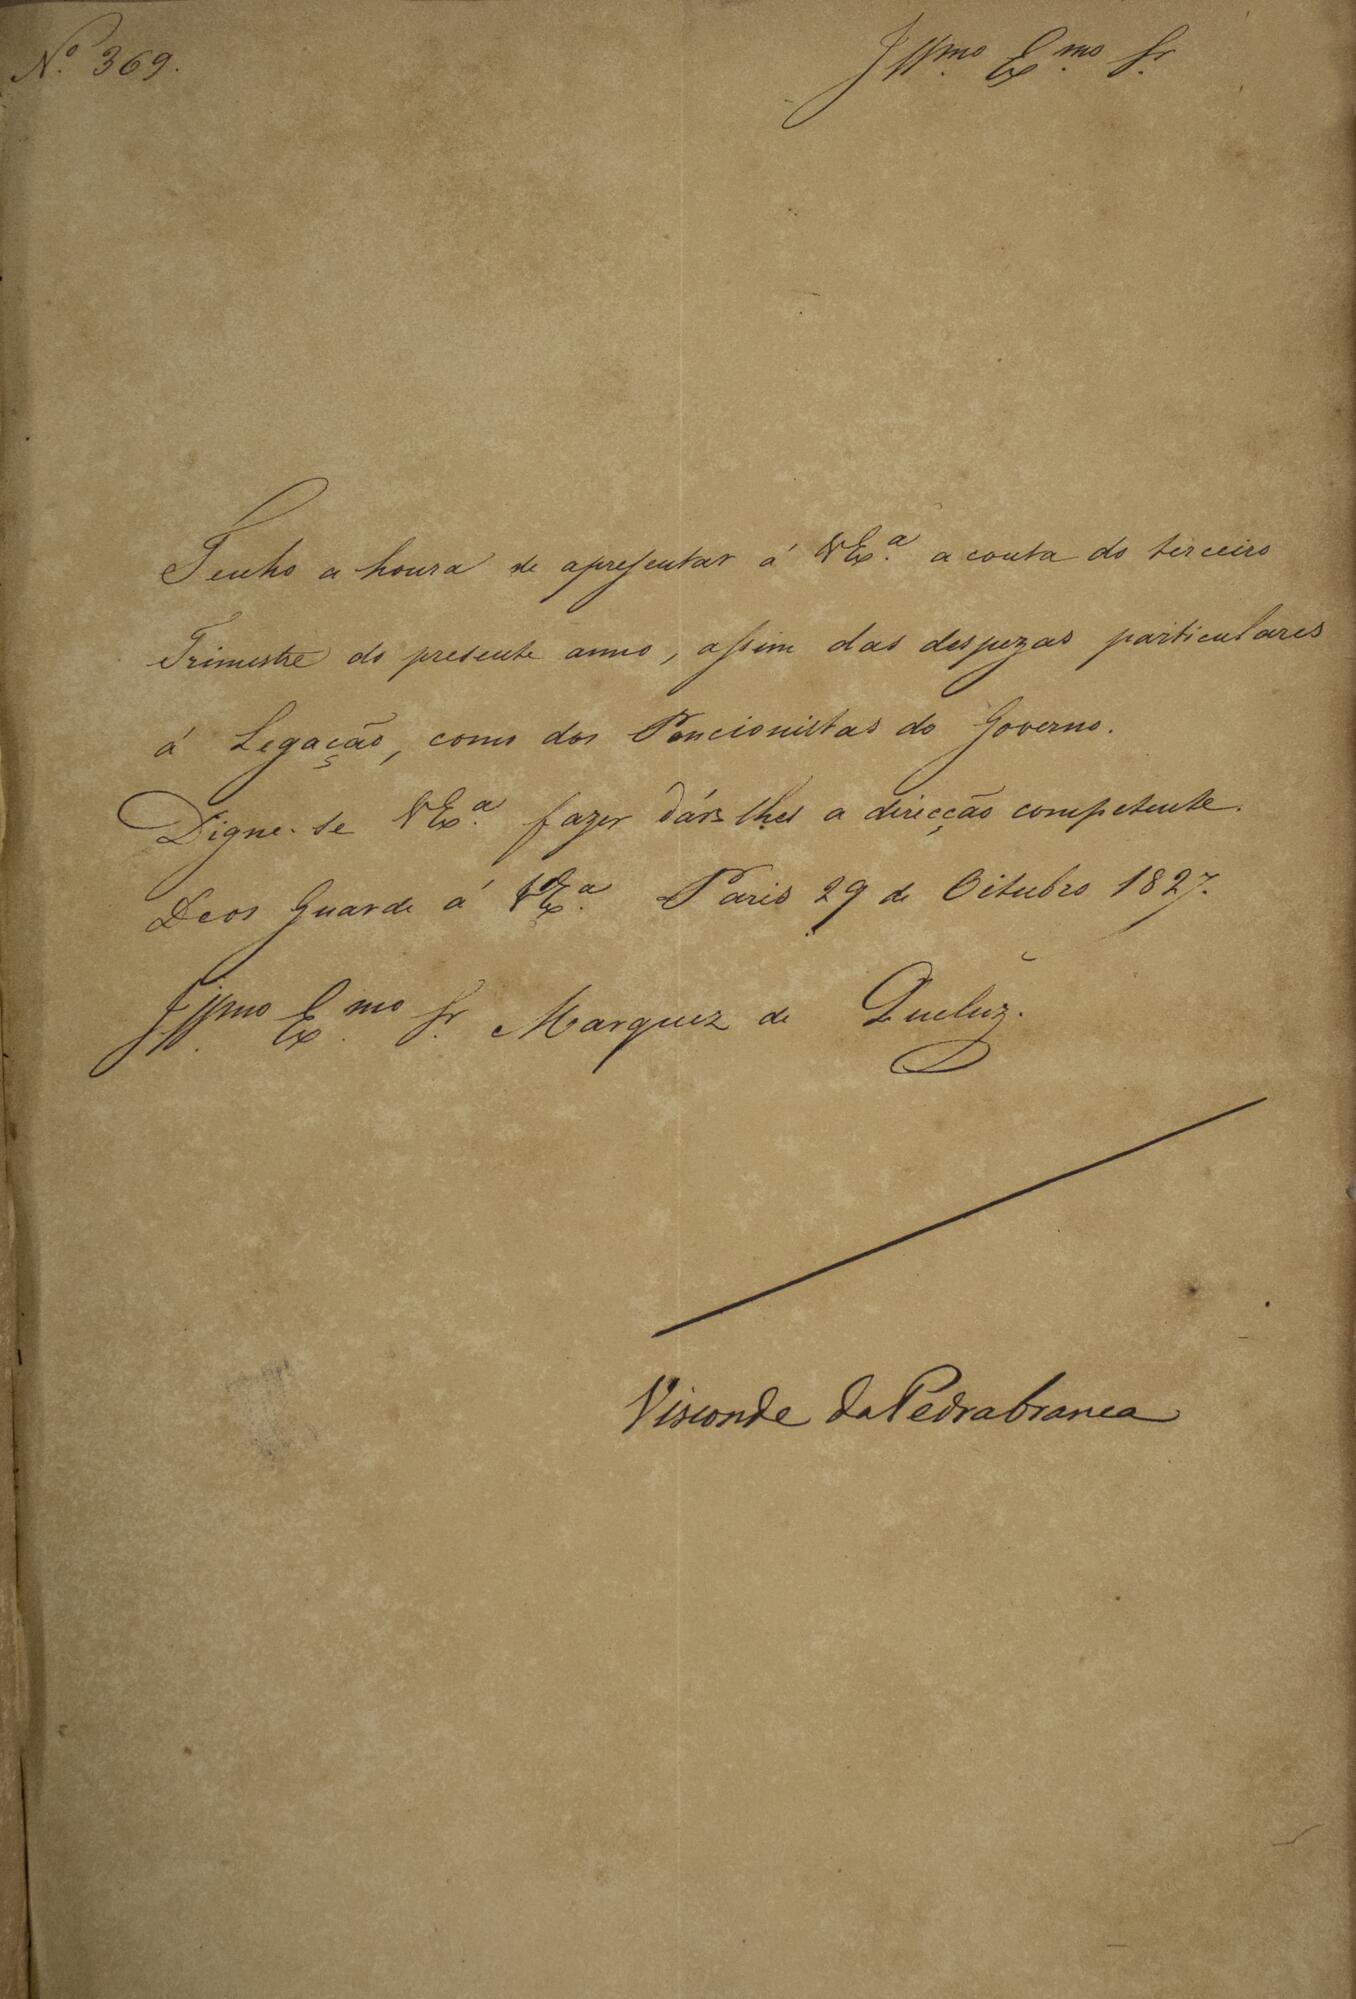 N.º 369.
Illmo Exmo Sr.
Tenho a honra de apresentar á V Ex.ª a conta do terceiro
Trimestre do presente anno, assim das despezas particulares
á Legação, como dos Pencionistas do Governo.
Digne-se V Ex.ª fazer dár-lhes a direcção competente.
Deos Guarde á V Ex.ª Paris 29 de Oitubro 1827.
Illmo Exmo Sr. Marquez de Queluz.
Visconde da Pedrabranca